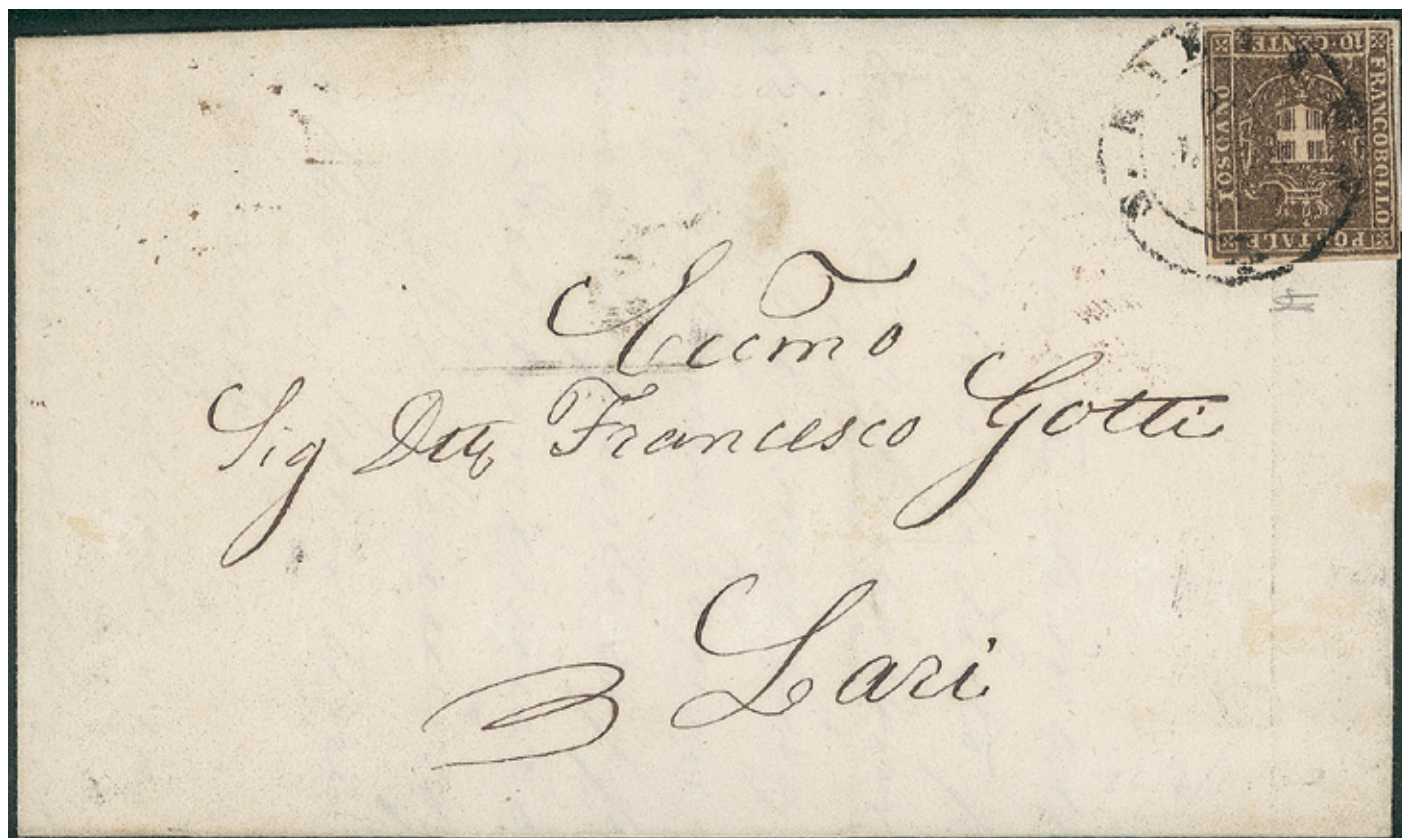 FRANCOBOLLO
POSTALE
TOSCANO
10 CENT
Sig Dtt Francesco Gotti
Lari